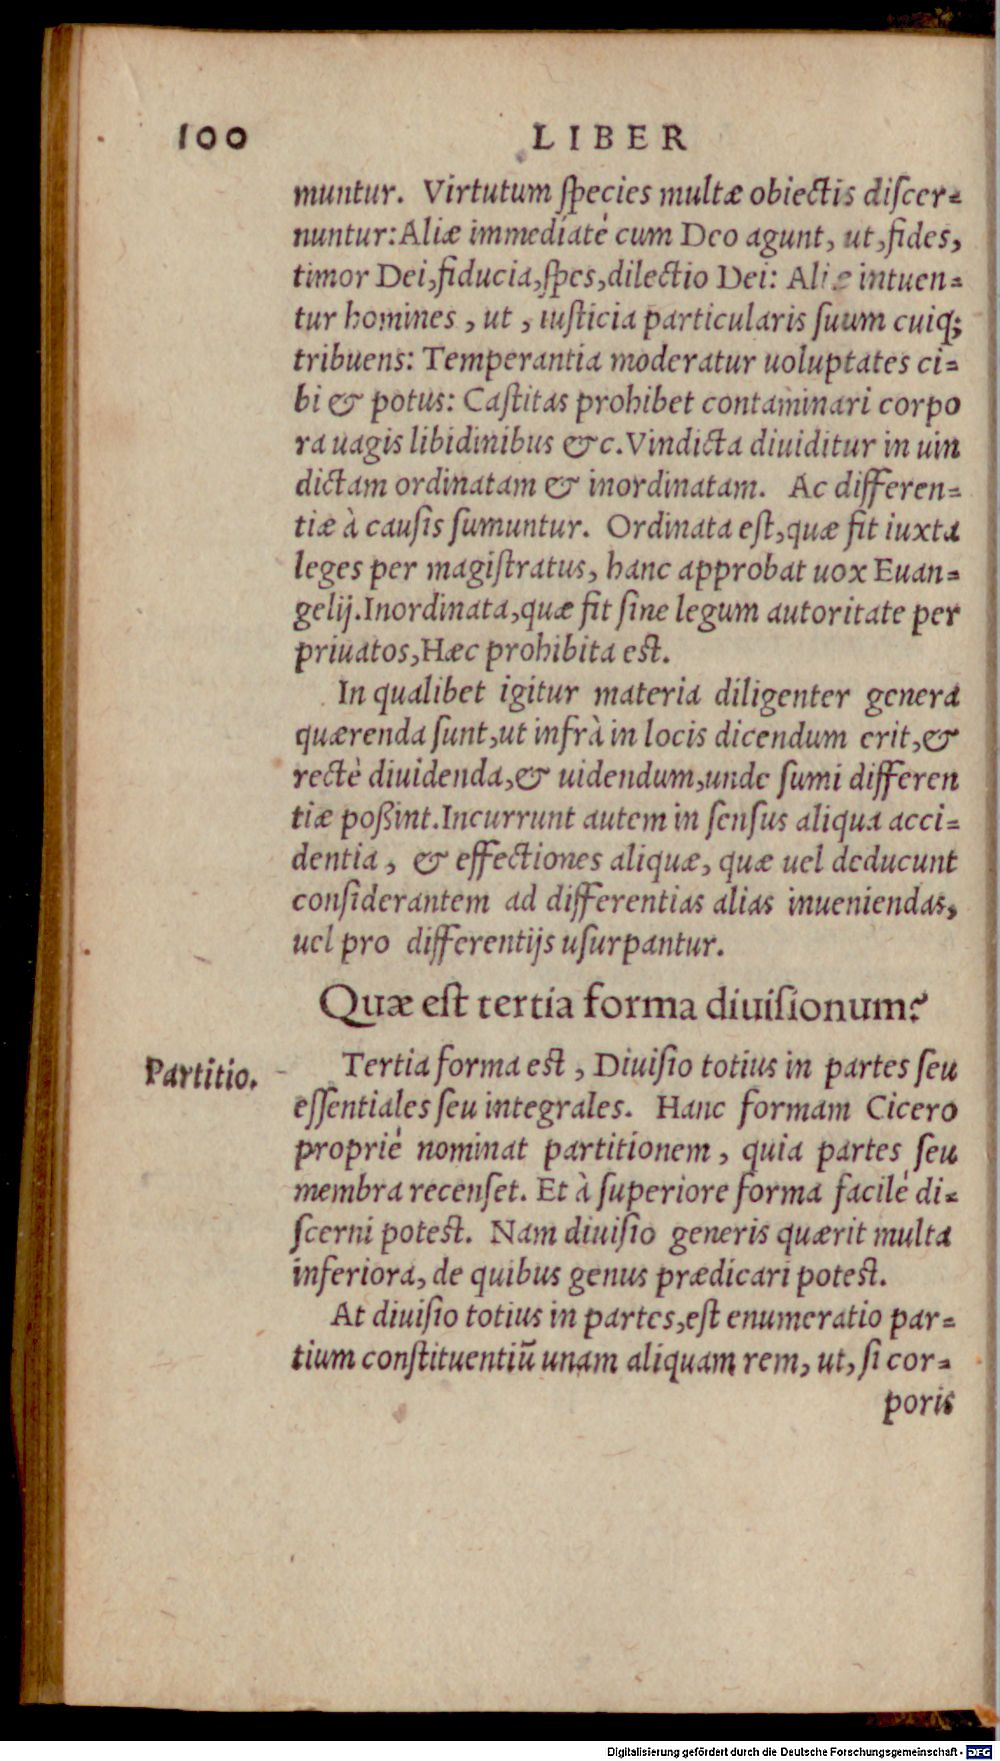 100 LIBER
muntur. Virtutum ſpecies multæ obiectis diſcer-
nuntur: Aliæ immediatè cum Deo agunt, ut, fides,
timor Dei, fiducia, ſpes, dilectio Dei: Aliæ intuen-
tur homines, ut, iuſticia particularis ſuum cuiq;
tribuens: Temperantia moderatur uoluptates ci-
bi & potus: Caſtitas prohibet contaminari corpo
ra uagis libidinibus &c. Vindicta diuiditur in uin
dictam ordinatam & inordinatam. Ac differen-
tiæ à cauſis ſumuntur. Ordinata eſt, quæ fit iuxta
leges per magiſtratus, hanc approbat uox Euan-
gelij. Inordinata, quæ fit ſine legum autoritate per
priuatos, Hæc prohibita eſt.
In qualibet igitur materia diligenter genera
quærenda ſunt, ut infrà in locis dicendum erit, &
rectè diuidenda, & uidendum, unde ſumi differen
tiæ poßint. Incurrunt autem in ſenſus aliqua acci-
dentia, & effectiones aliquæ, quæ uel deducunt
conſiderantem ad differentias alias inueniendas,
uel pro differentijs uſurpantur.
Quæ eſt tertia forma diuiſionum?
Partitio.
Tertia forma eſt, Diuiſio totius in partes ſeu
eſſentiales ſeu integrales. Hanc formam Cicero
propriè nominat partitionem, quia partes ſeu
membra recenſet. Et à ſuperiore forma facilè di-
ſcerni poteſt. Nam diuiſio generis quærit multa
inferiora, de quibus genus prædicari poteſt.
At diuiſio totius in partes, eſt enumeratio par-
tium conſtituentiũ unam aliquam rem, ut, ſi cor-
poris
Digitalisierung gefördert durch die Deutsche Forschungsgemeinschaft - DFG